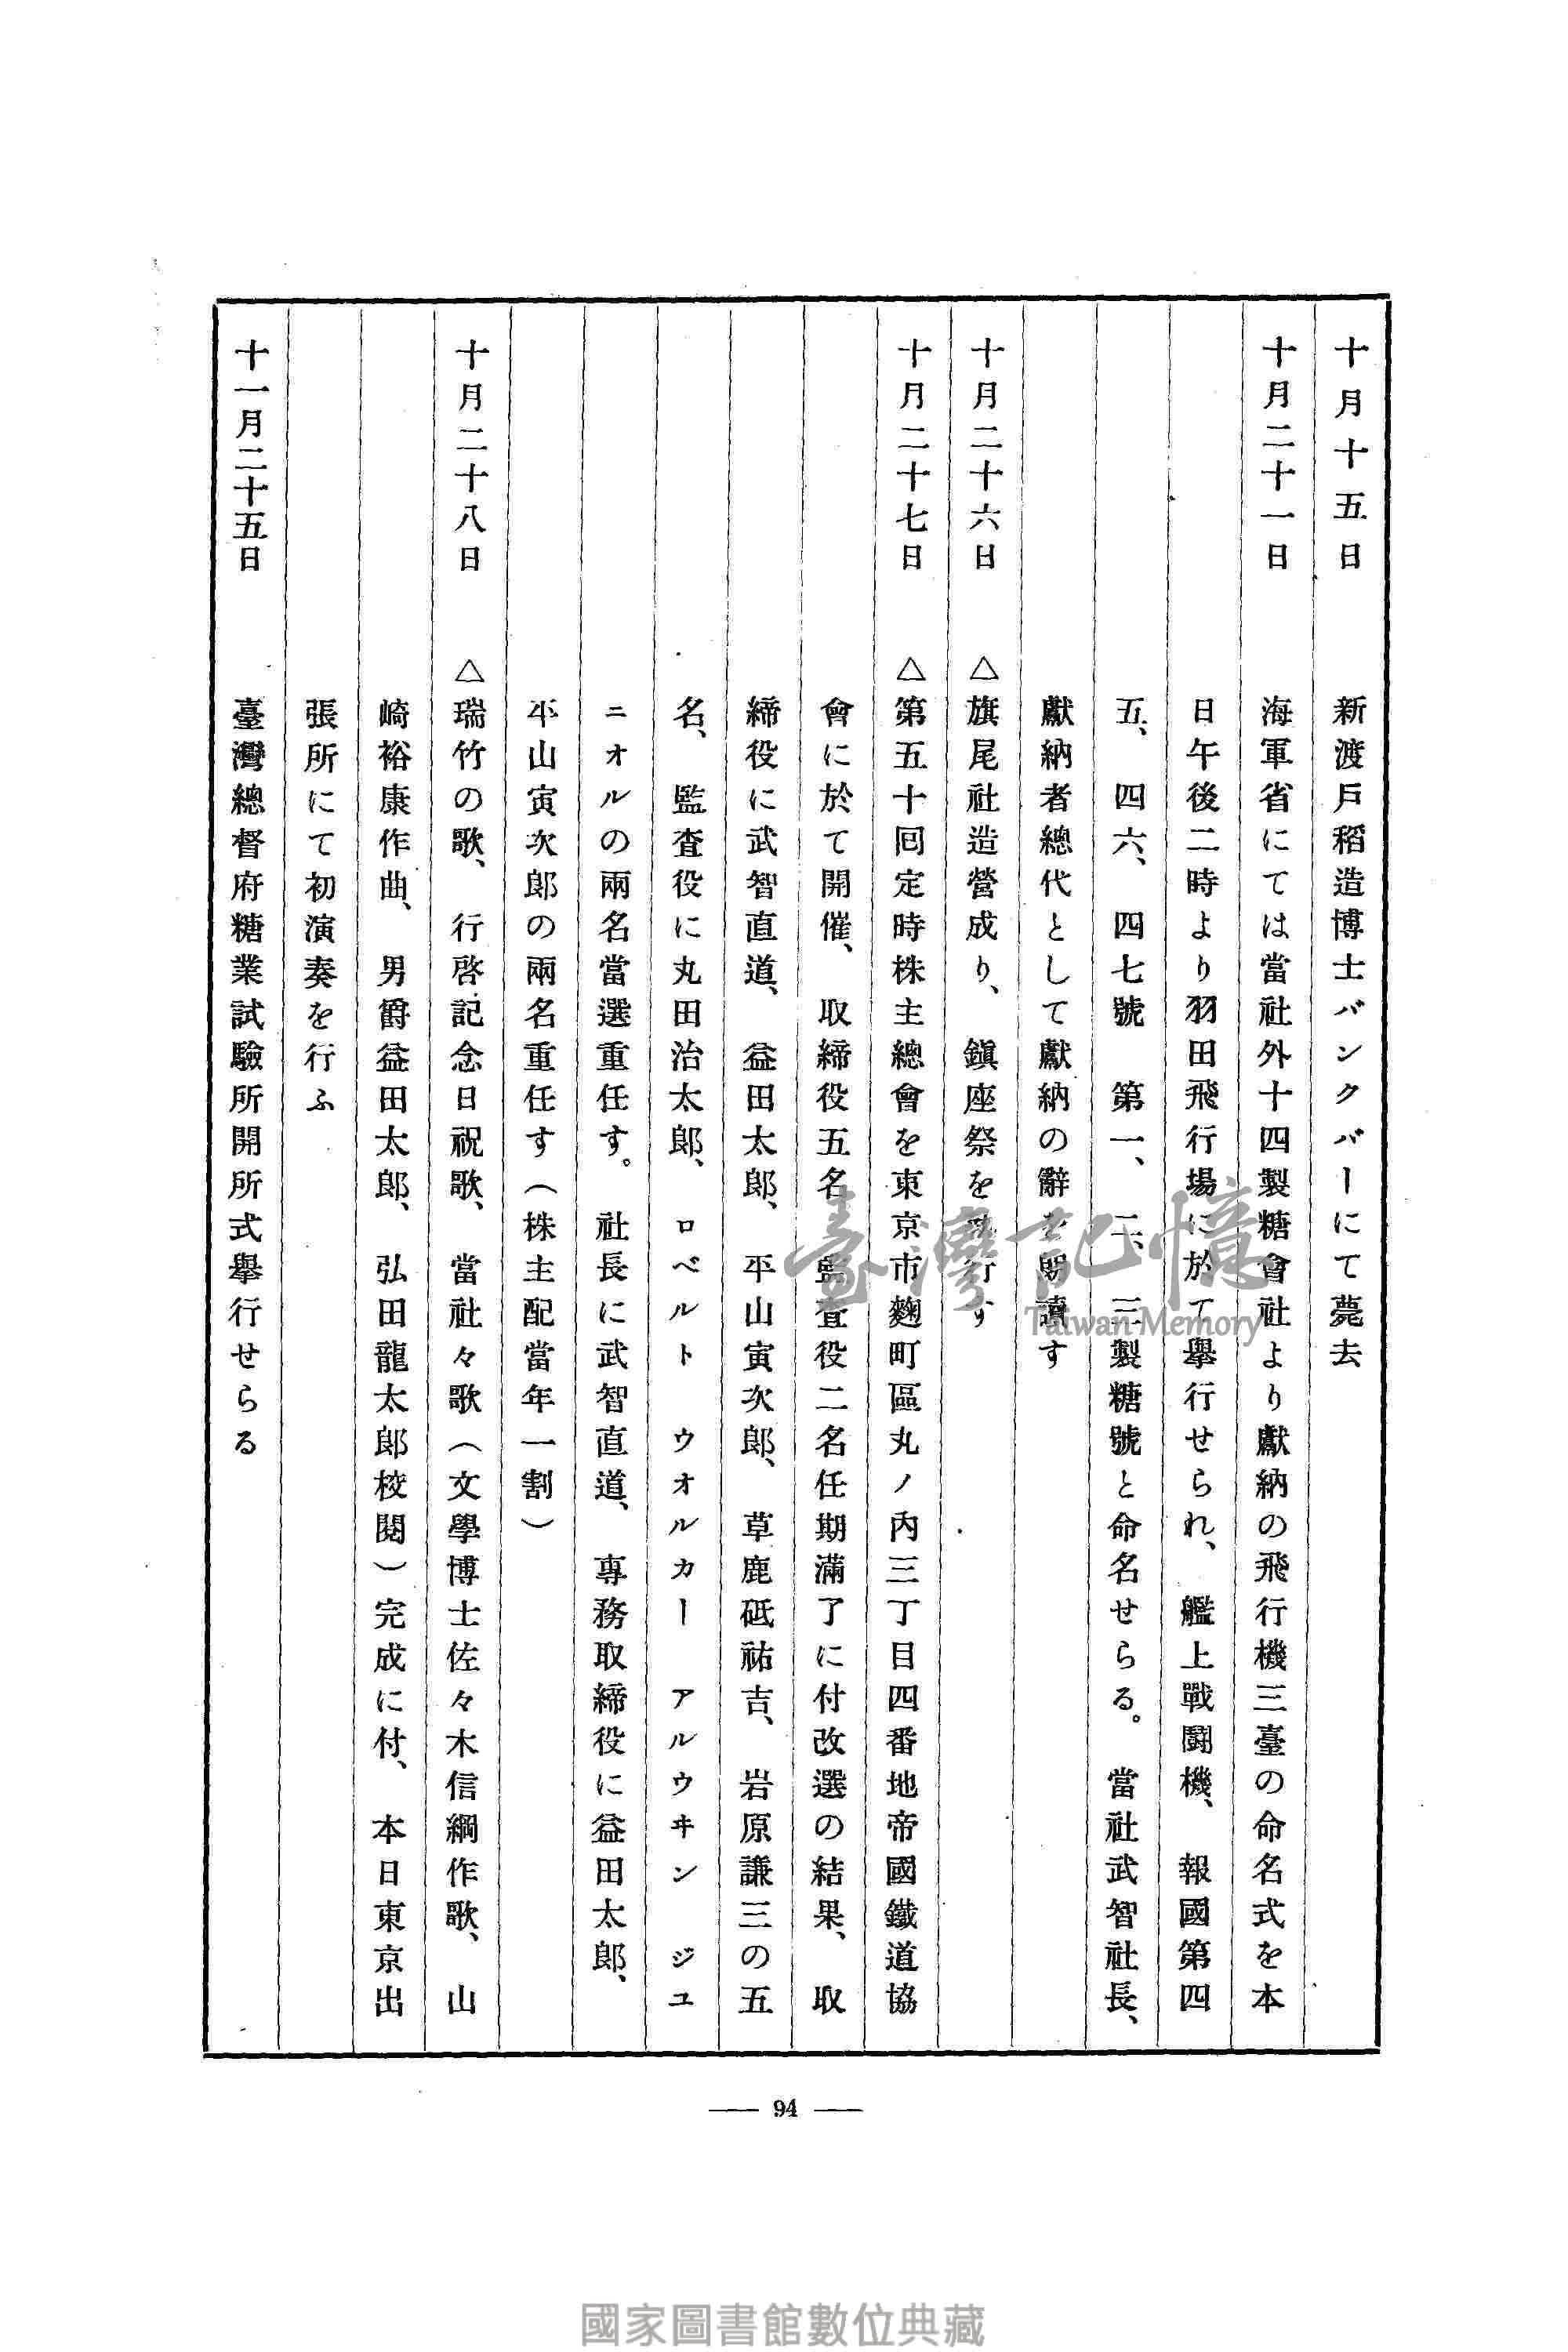 十月十五日　新渡戶稻造博士バンクバーにて薨去
十月二十一日　海軍省にては當社外十四製糖會社より獻納の飛行機三臺の命名式を本
日午後二時より羽田飛行場に於て擧行せられ、艦上戰鬪機、報國第四
五、四六、四七號　第一、二、三製糖號と命名せらる。當社武智社長、
獻納者總代として獻納の辭を朗讀す
十月二十六日　△旗尾社造營成り、鎭座祭を執行す
十月二十七日　△第五十囘定時株主總會を東京市麴町區丸ノ內三丁目四番地帝國鐵道協
會に於て開催、取締役五名、監査役二名任期滿了に付改選の結果、取
締役に武智直道、益田太郎、平山寅次郎、草鹿砥祐吉、岩原謙三の五
名、監査役に丸田治太郎、ロベルト　ウオルカー　アルウヰン　ジユ
ニオルの兩名當選重任す。社長に武智直道、專務取締役に益田太郎、
平山寅次郎の兩名重任す（株主配當年一割）
十月二十八日　△瑞竹の歌、行啓記念日祝歌、當社々歌（文學博士佐々木信綱作歌、山
崎裕康作曲、男爵益田太郎、弘田龍太郎校閱）完成に付、本日東京出
張所にて初演奏を行ふ
十一月二十五日　臺灣總督府糖業試驗所開所式擧行せらる
— 94 —
臺灣記憶
Taiwan Memory
國家圖書館數位典藏